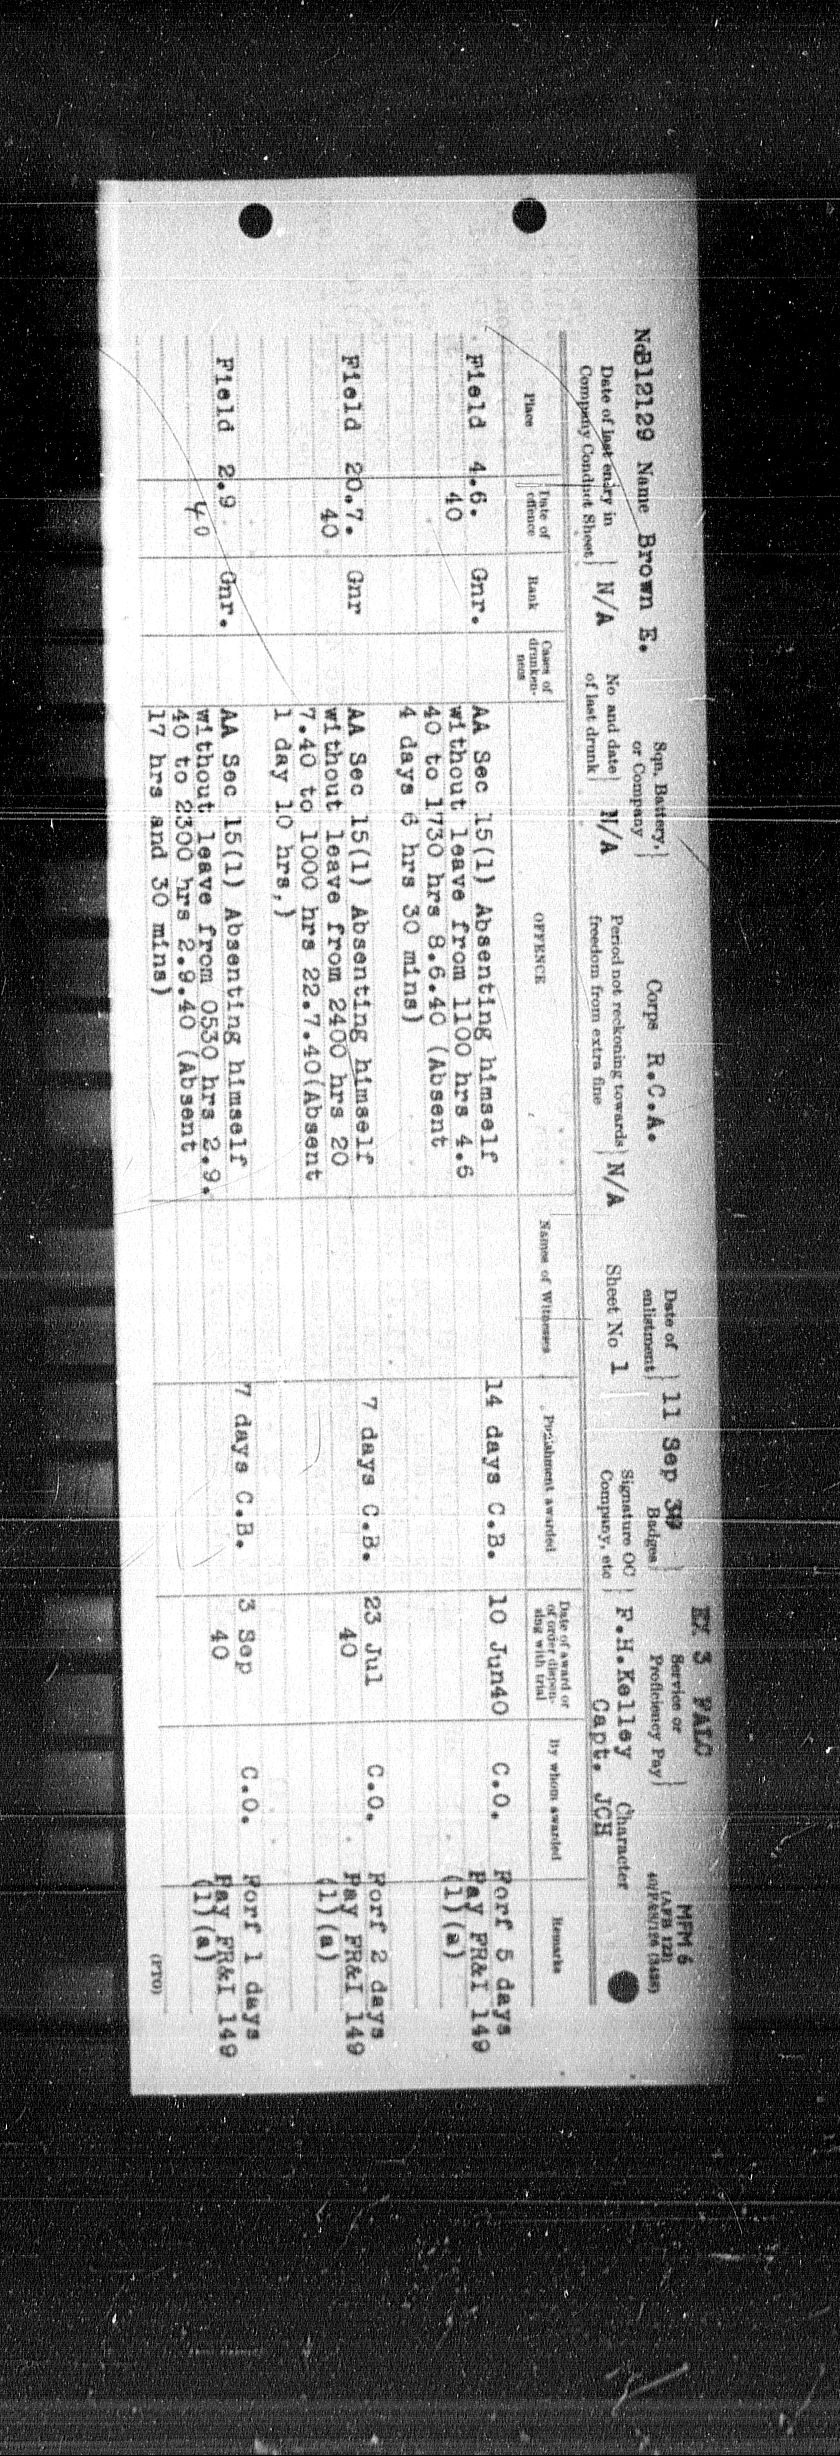 EX 3 PALC
MFM 6
(AFB 122)
No B12129 Name Brown E. Sqn. Battery, or Company Corps R.C.A. Date of enlistment 11 Sep 39 Badges Service or Proficiency Pay
Date of last entry in Company Conduct Sheet N/A No and date of last drunk N/A Period not reckoning towards freedom from extra fine N/A Sheet No 1 Signature OC Company, etc F.H.Kelley Capt. JCH Character
Place Date of offence Rank Cases of drunken-ness OFFENCE Names of Witnesses Punishment awarded Date of award or of order dispen-sing with trial By whom awarded Remarks
Field 4.6. Gnr. AA Sec 15(1) Absenting himself 14 days C.B. 10 Jun40 C.O. Forf 5 days
40 without leave from 1100 hrs 4.6 Pay FR&I 149
40 to 1730 hrs 8.6.40 (Absent (1)(a)
4 days 6 hrs 30 mins)
Field 20.7. Gnr AA Sec 15(1) Absenting himself 7 days C.B. 23 Jul C.O. Forf 2 days
40 without leave from 2400 hrs 20 40 Pay FR&I 149
7.40 to 1000 hrs 22.7.40(Absent (1)(a)
1 day 10 hrs,)
Field 2.9 Gnr. AA Sec 15(1) Absenting himself 7 days C.B. 3 Sep C.O. Forf 1 days
40 without leave from 0530 hrs 2.9. 40 Pay FR&I 149
40 to 2300 hrs 2.9.40 (Absent (1)(a)
17 hrs and 30 mins)
(PTO)